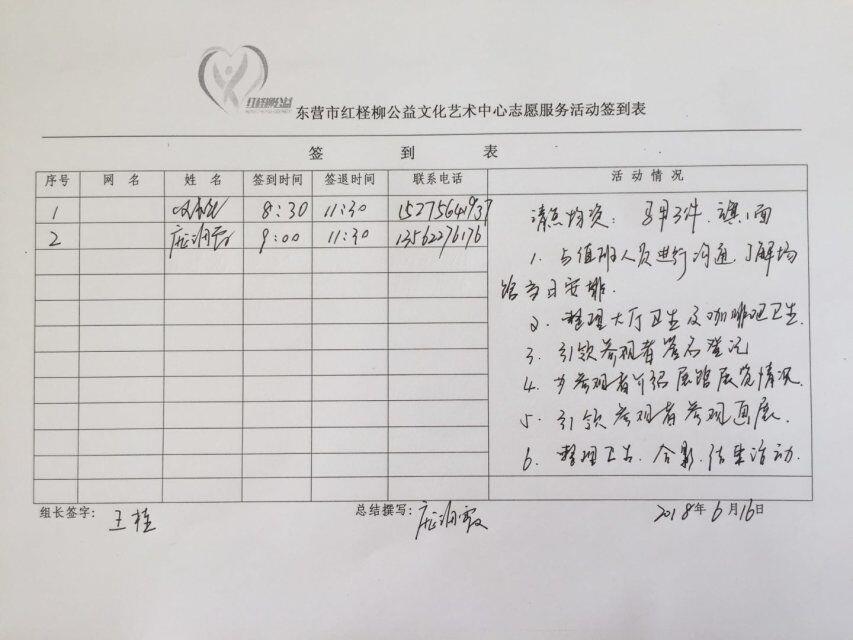 红柽柳公益
东营市红柽柳公益文化艺术中心志愿服务活动签到表
签 到 表
序号 网 名 姓 名 签到时间 签退时间 联系电话 活动情况
1 8:30 11:30 15275641937
2 9:00 11:30 13562276176
物资: 马甲3件、旗1面
1. 与值班人员进行沟通,了解场
馆当日安排.
2. 整理大厅卫生及咖啡吧卫生.
3. 引领参观者签名登记
4. 为参观者介绍展馆展览情况.
5. 引领参观者参观画展.
6. 整理卫生、合影、结束活动.
组长签字: 王桂 总结撰写: 2018年6月16日